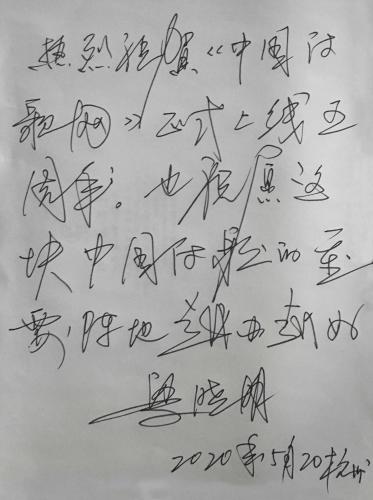 热烈祝贺《中国诗
歌网》正式上线五
周年。也祝愿这
块中国诗歌的重
要阵地越办越好
梁晓明
2020年5月20杭州